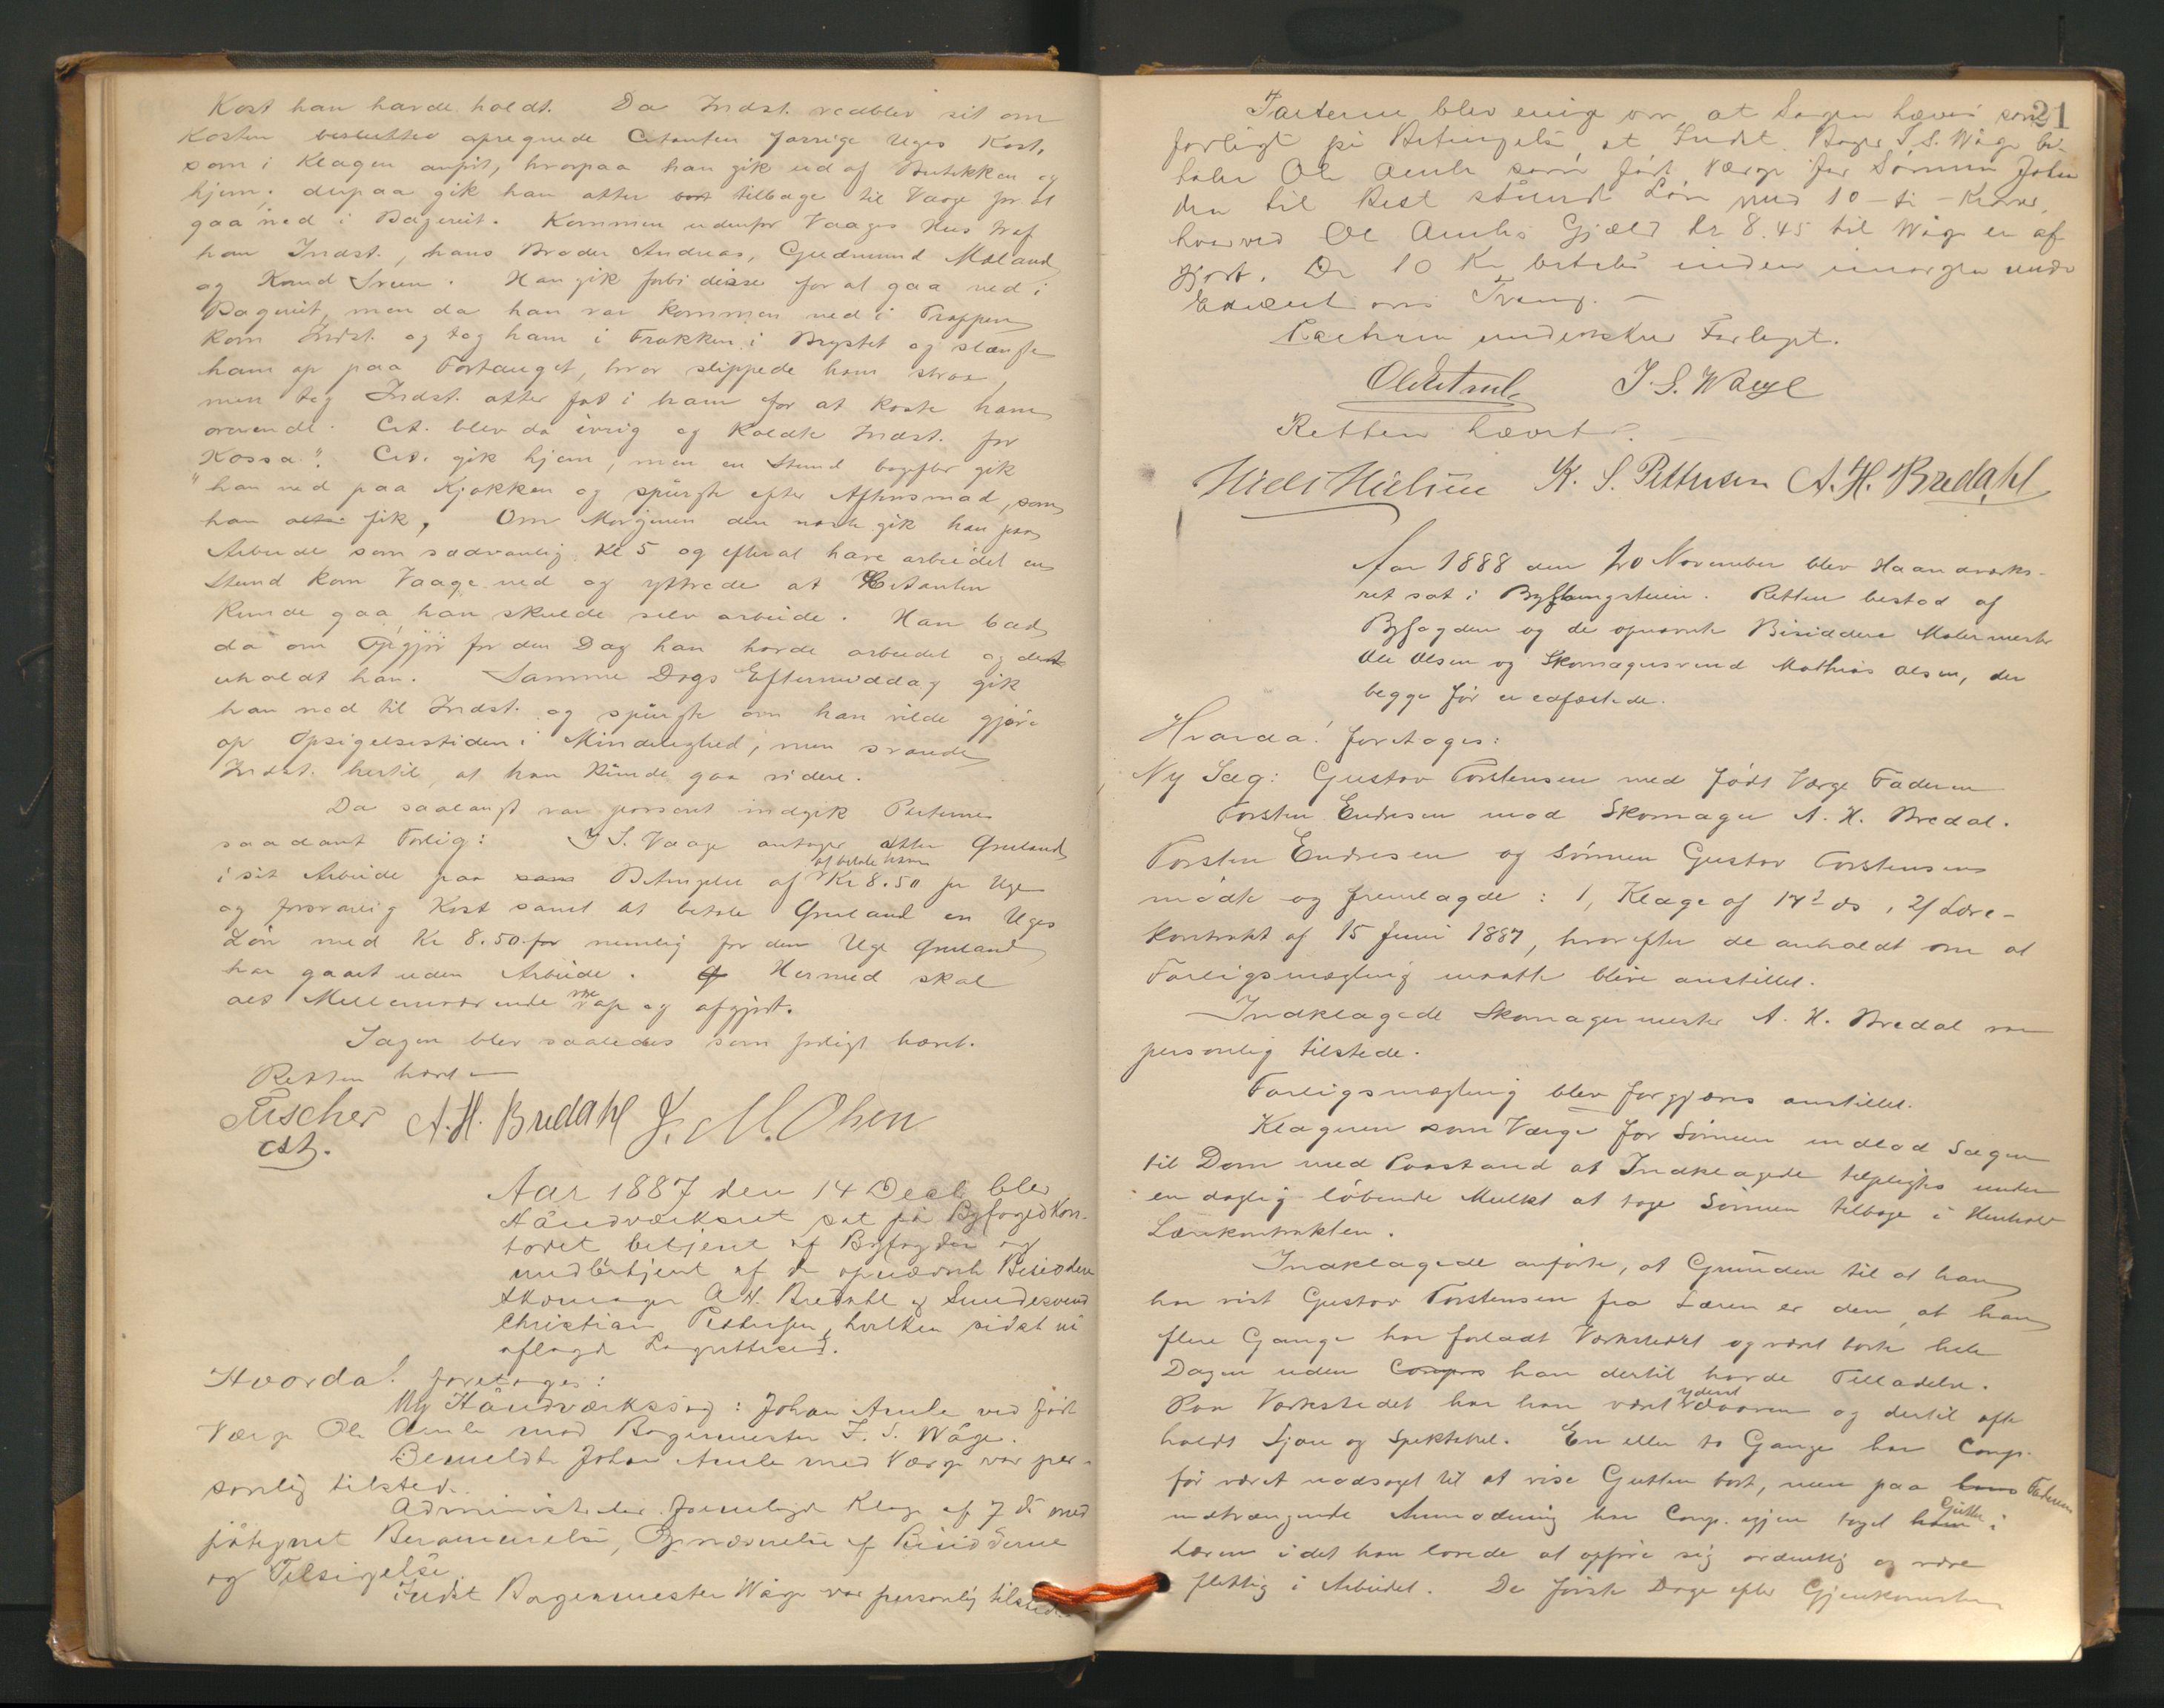 Kost han havde holdt. Da Indst. vedblev sit om
Kosten besluttet afregnede Citanten forrige Uges Kost,
som i Klagen anført, hvorpaa han gik ud af Butikken og
hjem; derpaa gik han atter bort tilbage til Vaage for at
gaa ned i Bageriet. Kommen udenfor Vaages Hus traf
han Indst., hans Broder Andreas, Gudmund Mæland
og Knud Sveen. Han gik forbi disse for at gaa ned i
Bageriet, men da han var kommen ned i Trappen
kom Indst. og tog ham i Frakken i Brystet og slængte
ham op paa Fortauget, hvor slippede ham strax,
men tog Indst. atter fat i ham for at kaste ham
overende. Cit. blev da ivrig og kaldte Indst. for
"Kossa". Cit. gik hjem, men en Stund bagefter gik
han ned paa Kjøkken og spurgte efter Aftensmad, som
han fik, Om Morgenen den næste gik han paa
Arbeide som sædvanlig Kl 5 og efterat have arbeidet en
Stund kom Vaage ned og yttrede at Citanten
kunde gaa, han skulde selv arbeide. Han bad
da om Opgjør for den Dag han havde arbeidet og dette
erholdt han. Samme Dags Eftermiddag gik
han ned til Indst. og spurgte om han vilde gjøre
op Opsigelsestiden i Mindelighed, men svarede
Indst. hertil, at han kunde gaa videre.
Da saalangt var passeret indgik Parterne
saadant Forlig: I. S. Vaage antager atter Gruland
i sit Arbeide paa Betingelse af at betale ham Kr 8.50 pr Uge
og forsvarlig Kost samt at betale Gruland en Uges
Løn med Kr 8.50 for nemlig for den Uge Gruland
har gaaet uden Arbeide. Hermed skal
alt Mellemværende være op og afgjort.
Sagen blev saaledes som forligt hævet.
Retten hævet
Fischer A. H. Bredahl J. M. Olsen
cst.
Aar 1887 den 14 Decbr blev
Håndværksret sat på Byfogedkon-
toret betjent af Byfogden og
medbetjent af de opnævnte Bisiddere
Skomager A. H. Bredahl og Smedesvend
Christian Pettersen, hvilken sidst nu
aflagde Lagrettesed.
Hvorda! foretoges:
Ny Håndværkssag: Johan Amle ved født
Værge Ole Amle mod Bagermester I. S. Wåge.
Bemeldte Johan Amle med Værge var per-
sonlig tilstede.
Administ. der fremlagde Klage af 7 ds med
påtegnet Berammelse, Opnævnelse af Bisidderne
og Tilsigelse.
Indst Bagermester Wåge var personlig tilstede
21
Parterne blev enige om at Sagen hæves som
forligt på Betingelse at Indst. Bager I. S. Wåge be-
taler Ole Amle som født Værge for Sønnen Johan
den til Rest stående Løn med 10 - ti - Kroner,
hvorved Ole Amles Gjæld Kr 8.45 til Wåge er af
gjort. De 10 Kr betales inden imorgen under
Execut om Tvang. -
Parterne underskrev Forliget.
Ole Amle I. S. Waage
Retten hævet.
Niels Nielsen K. S. Pettersen A. H. Bredahl
Aar 1888 den 20 November blev Haandværks-
ret sat i Bythingstuen. Retten bestod af
Byfogden og de opnævnte Bisiddere Malermester
Ole Olsen og Skomagersvend Mathias Olsen, der
begge før er edfæstede.
Hvorda! foretoges:
Ny Sag: Gustav Torstensen med født Værge Faderen
Torsten Endresen mod Skomager A. H. Bredal.
Torsten Endresen og Sønnen Gustav Torstensen
mødte og fremlagde: 1, Klage af 17 ds, 2/ Lære-
kontrakt af 15 Juni 1887, hvorefter de anholdt om at
Forligsmægling maatte blive anstillet.
Indklagede Skomagermester A. H. Bredal var
personlig tilstede.
Forligsmægling blev forgjæves anstillet.
Klageren som Værge for Sønnen indlod Sagen
til Dom med Paastand at Indklagede tilpligtes under
en daglig løbende Mulkt at tage Sønnen tilbage i Henhold
Lærekontrakten.
Indklagede anførte, at Grunden til at han
har vist Gustav Torstensen fra Læren er den, at han
flere Gange har forladt Værkstedet og været borte hele
Dagen uden Comps han dertil havde Tilladelse.
Paa Værkstedet har han været yderst doven og dertil ofte
holdt Sjau og Spektakel. En eller to Gange har Comp.
før været nødsaget til at vise Gutten bort, men paa hans Faderens
indtrængende Anmodning har Comp. igjen taget ham Gutten i
Læren idet han lovede at opføre sig ordentlig og være
flittig i Arbeidet. De første Dage efter Gjenkomsten